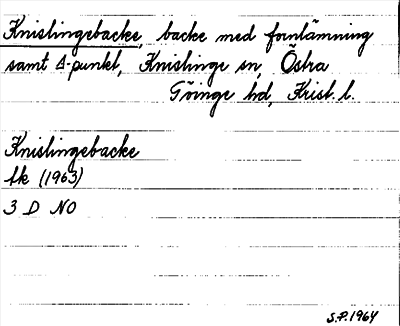 Knislingebacke, backe med fornlämning
samt Δ-punkt, Knislinge sn, Östra
Göinge hd, Krist. l.
Knislingebacke
Ek (1963)
3 D NO
S.P. 1964